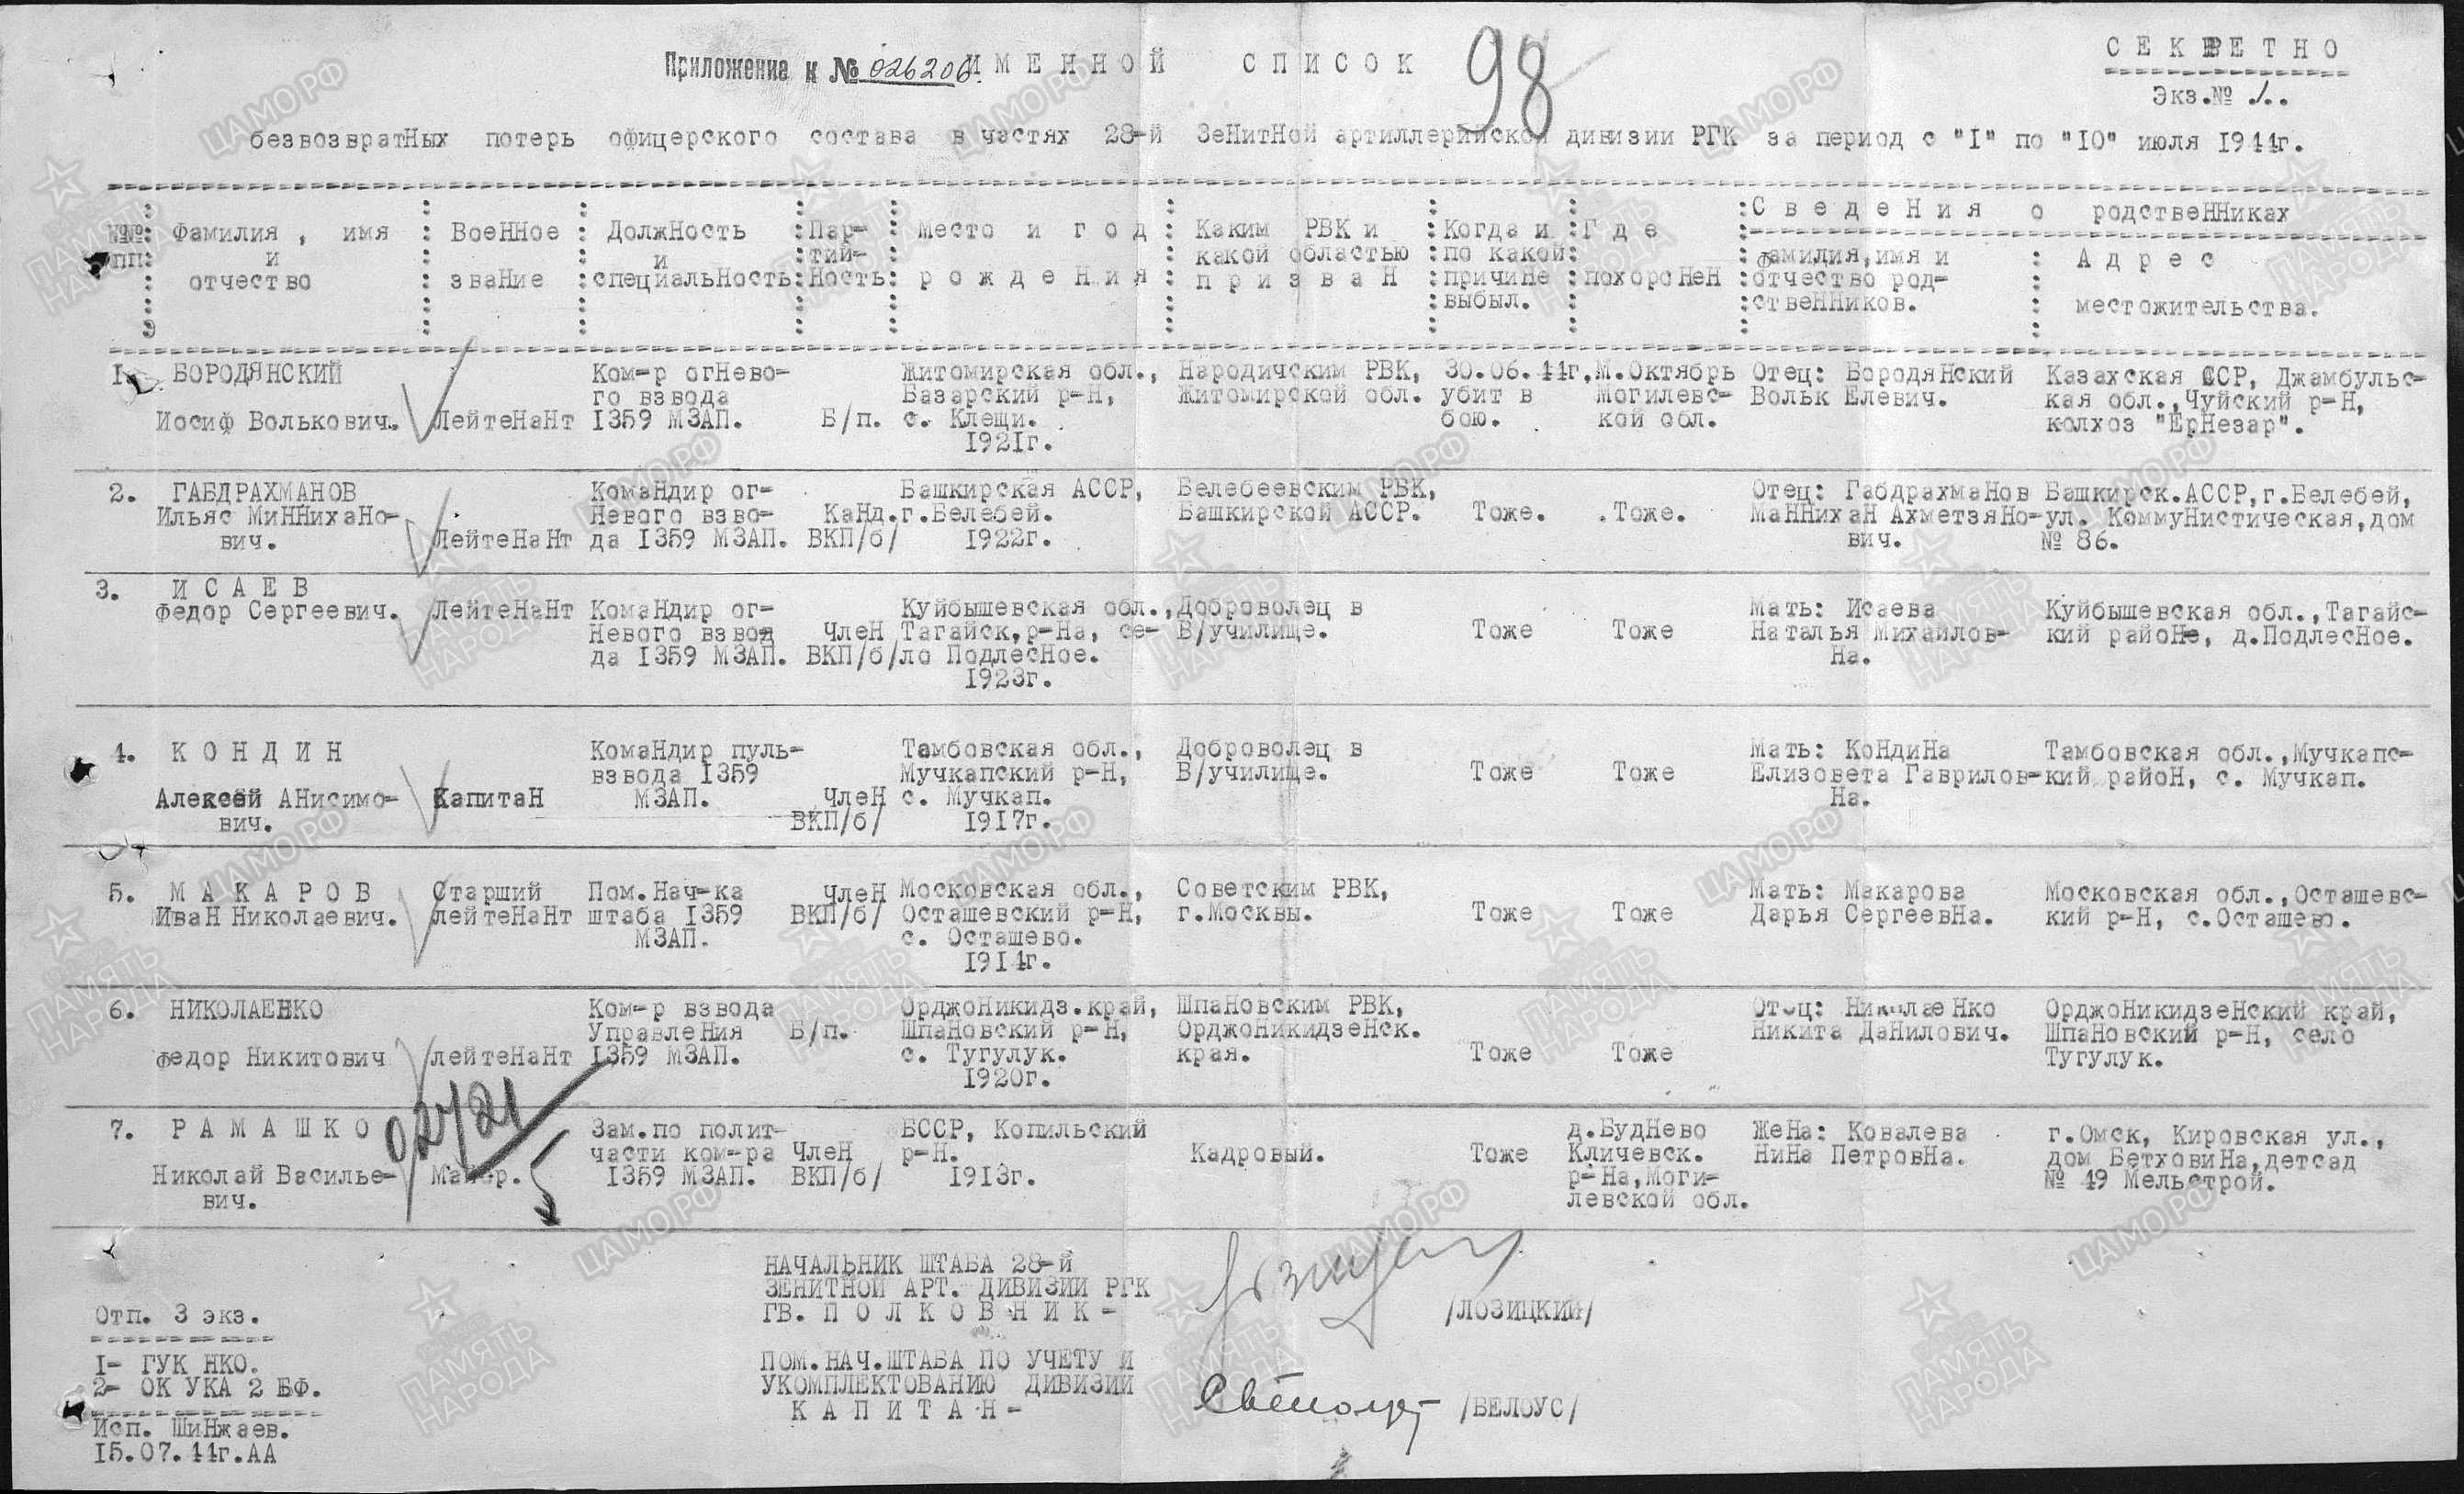 Приложение к № 026206. ИМЕННОЙ СПИСОК 98 СЕКРЕТНО
Экз.№ 1..
безвозвратных потерь офицерского состава в частях 28-й Зенитной артиллерийской дивизии РГК за период с "I" по "IO" июля 1944г.
№№ пп
Фамилия, имя и отчество
Военное звание
Должность и специальность
Пар-тий-ность
Место и год рождения
Каким РВК и какой областью призван
Когда и по какой причине выбыл.
Где похоронен
Сведения о родственниках
фамилия,имя и отчество род-ственников.
Адрес местожительства.
I. БОРОДЯНСКИЙ
Иосиф Волькович.
Лейтенант
Ком-р огнево-
го взвода
I359 МЗАП.
Б/п.
Житомирская обл.,
Базарский р-н,
с. Клещи.
1921г.
Народичским РВК,
Житомирской обл.
30.06.44г.
убит в
бою.
М.Октябрь
Могилевс-
кой обл.
Отец: Бородянский
Вольк Елевич.
Казахская ССР, Джамбульс-
кая обл.,Чуйский р-н,
колхоз "Ернезар".
2. ГАБДРАХМАНОВ
Ильяс Миннихано-
вич.
Лейтенант
Командир ог-
невого взво-
да I359 МЗАП.
Канд.
ВКП/б/
Башкирская АССР,
г.Белебей.
1922г.
Белебеевским РВК,
Башкирской АССР.
Тоже.
.Тоже.
Отец: Габдрахманов
Маннихан Ахметзяно-
вич.
Башкирск.АССР,г.Белебей,
ул. Коммунистическая,дом
№ 86.
3. ИСАЕВ
Федор Сергеевич.
Лейтенант
Командир ог-
невого взвод
да I359 МЗАП.
Член
ВКП/б/
Куйбышевская обл.,
Тагайск,р-на, се-
ло Подлесное.
1923г.
Доброволец в
В/училище.
Тоже
Тоже
Мать: Исаева
Наталья Михайлов-
на.
Куйбышевская обл.,Тагайс-
кий районе, д.Подлесное.
4. КОНДИН
Алексей Анисимо-
вич.
Капитан
Командир пуль-
взвода I359
МЗАП.
Член
ВКП/б/
Тамбовская обл.,
Мучкапский р-н,
с. Мучкап.
1917г.
Доброволец в
В/училище.
Тоже
Тоже
Мать: Кондина
Елизовета Гаврилов-
на.
Тамбовская обл.,Мучкапс-
кий район, с. Мучкап.
5. МАКАРОВ
Иван Николаевич.
Старший
лейтенант
Пом.Нач-ка
штаба I359
МЗАП.
Член
ВКП/б/
Московская обл.,
Осташевский р-н,
с. Осташево.
1914г.
Советским РВК,
г.Москвы.
Тоже
Тоже
Мать: Макарова
Дарья Сергеевна.
Московская обл.,Осташевс-
кий р-н, с.Осташево.
6. НИКОЛАЕНКО
Федор Никитович
лейтенант
Ком-р взвода
Управления
I359 МЗАП.
Б/п.
Орджоникидз.край,
Шпановский р-н,
с. Тугулук.
1920г.
Шпановским РВК,
Орджоникидзенск.
края.
Тоже
Тоже
Отец: Николаенко
Никита Данилович.
Орджоникидзенский край,
Шпановский р-н, село
Тугулук.
02421
5
7. РАМАШКО
Николай Василье-
вич.
Майор.
Зам.по полит-
части ком-ра
I359 МЗАП.
Член
ВКП/б/
БССР, Копильский
р-н.
1913г.
Кадровый.
Тоже
д.Буднево
Кличевск.
р-на,Моги-
левской обл.
Жена: Ковалева
Нина Петровна.
г.Омск, Кировская ул.,
дом Бетховина,детсад
№ 49 Мельстрой.
НАЧАЛЬНИК ШТАБА 28-й
ЗЕНИТНОЙ АРТ. ДИВИЗИИ РГК
ГВ. ПОЛКОВНИК - /ЛОЗИЦКИЙ/
ПОМ.НАЧ.ШТАБА ПО УЧЕТУ И
УКОМПЛЕКТОВАНИЮ ДИВИЗИИ
КАПИТАН - /БЕЛОУС/
Отп. 3 экз.
I- ГУК НКО.
2- ОК УКА 2 БФ.
Исп. Шинжаев.
I5.07.44г.АА
ЦАМО.РФ
ПАМЯТЬ НАРОДА